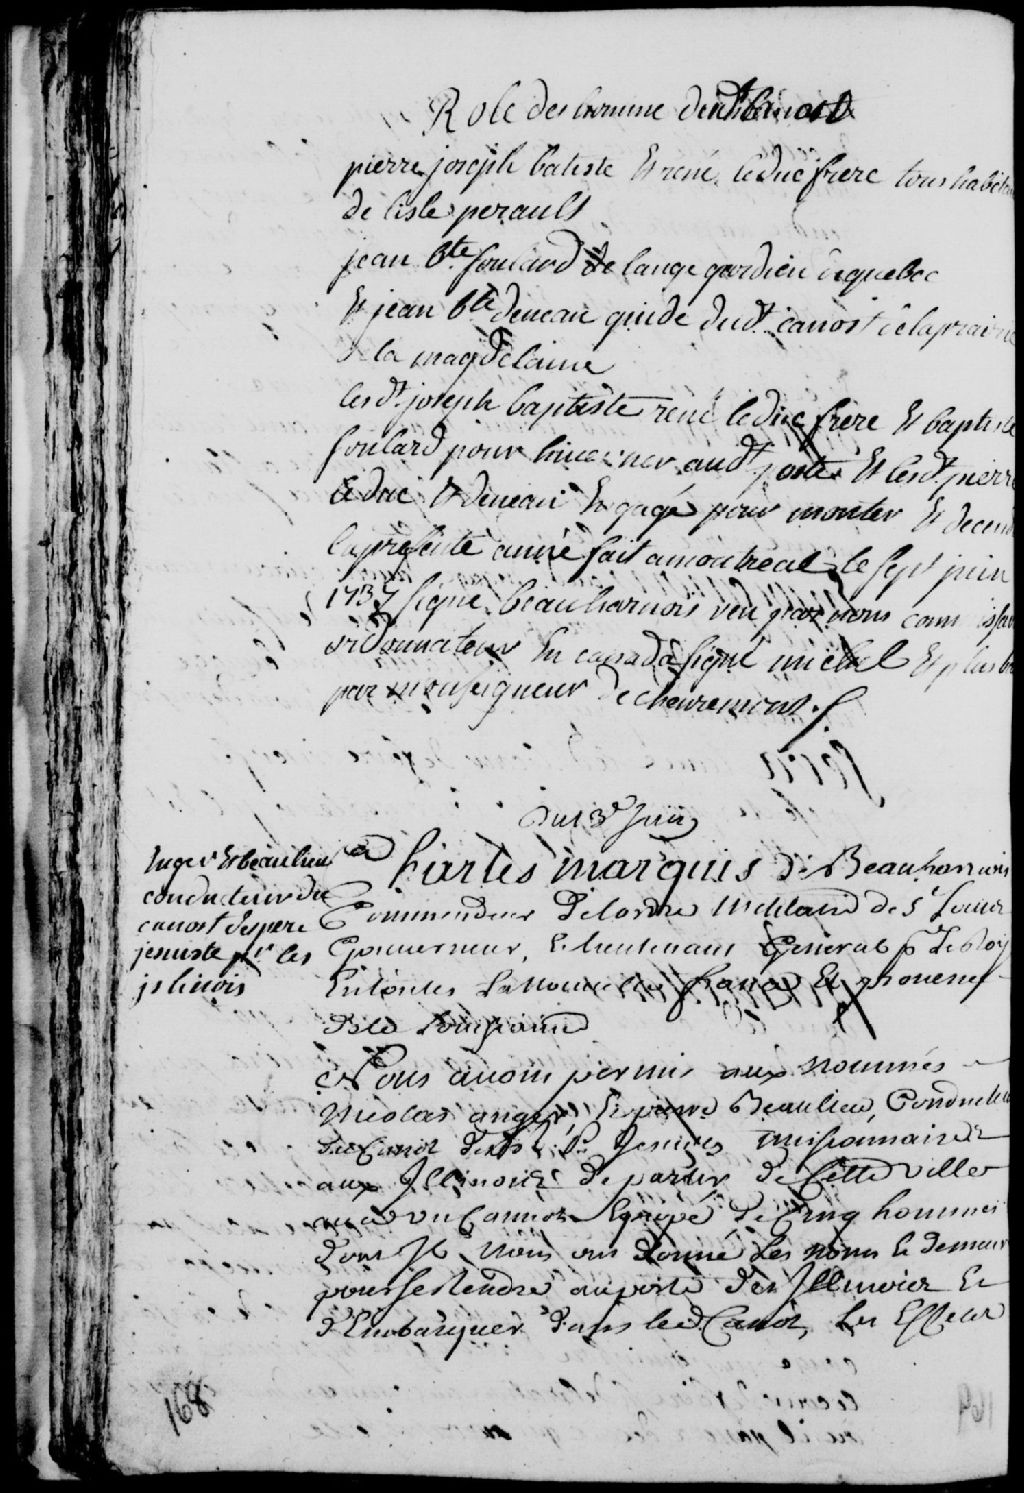 Role des homme dudt canost
pierre joseph batiste & rené leduc frere tous habitan
de lisle perault
jean bte foulard de lange gardien a quebec
& jean bte deneau guide dudt canost a laprairie
de la magdelaine
lesdt joseph baptiste rené leduc frere & baptiste
foulard pour hiverner audt poste & lesdt pierre
leduc & deneau Engagé pour monter & decend
la presente année fait a montreal le sept juin
1737 signé beauharnois veu par nous commissaire
ordonnateur En canada signé michel & plus bas
par monseigneur De chevremont
Du 13e Juin
Anger & beaulieu
conducteur du
canost des pere
jesuiste pr les
jslinois
Charles marquis de Beauharnois
Commendeur de lordre militaire de St Louis
Gouverneur, Lieutenant General pr le Roy
En toutes La Nouvelle france Et province
dela Louisianne
Nous avons permis aux nommés
Nicolas anger, & pierre Beaulieu, Conducteur
du Canot des R. P. Jesuites missionnaires
aux Jllinoice De partir De Cette ville
avec un Cannot Equipé De Cinq hommes
dont Jls Nous ont donné les noms & demeure
pour se Rendre au poste des Jllinoice Et
d'Embarquer dans led Canot, les Effets
168